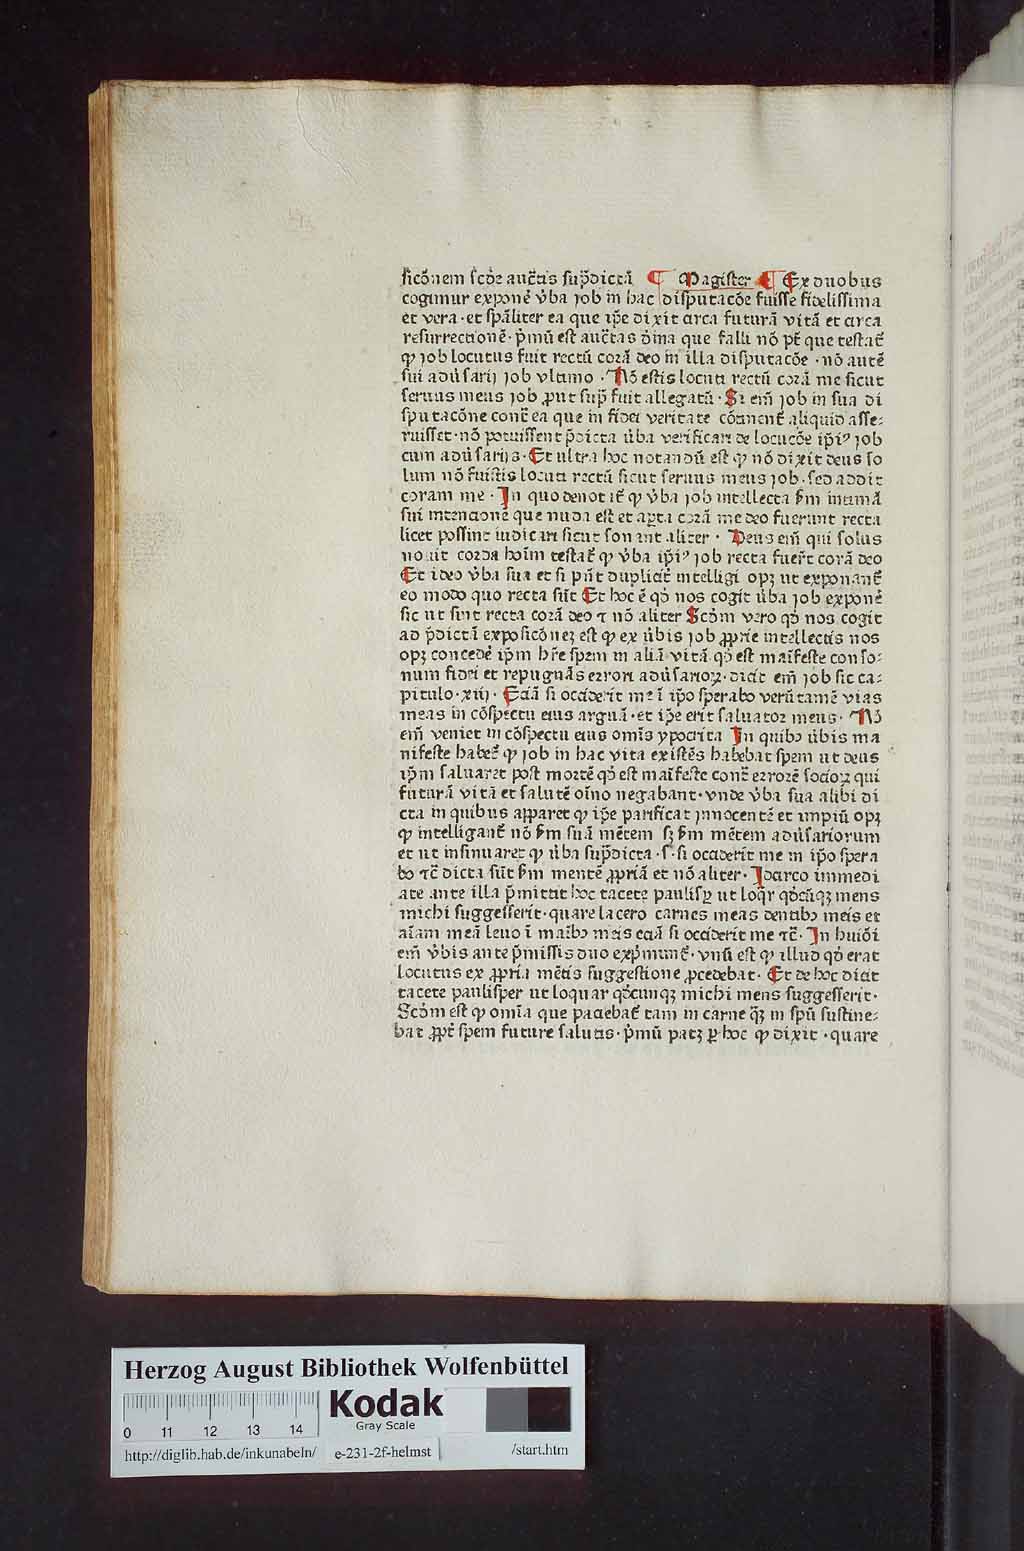 sicõnem scõe auctis sup̃dictã ¶ Magister ¶ Ex duobus
cogimur exponẽ v̉ba job in hac disputacõe fuisse fidelissima
et vera · et spãliter ea que ip̃e dixit circa futurã vitã et circa
resurrectionẽ · p̃mũ est auctas diña que falli nõ pt̃ que testat̃
ꝙ job locutus fuit rectũ corã deo in illa disputacõe · nõ autẽ
sui adũsarij job vltimo · Nõ estis locuti rectũ corã me sicut
seruus meus job ꝓut sup̃ fuit allegatũ · Si em̃ job in sua di
sputacõne cont̃ ea que in fidei veritate cõtinent̃ aliquid asse⸗
ruisset · nõ potuissent p̃dicta v̉ba verificari de locucõe ip̃iꝰ job
cum adũsarijs · Et ultra hoc notandũ est ꝙ nõ dixit deus so
lum nõ fuistis locuti rectũ sicut seruus meus job · sed addit
coram me · In quo denotat̃ ꝙ v̉ba job intellecta s̃m intimã
sui intencionẽ que nuda est et aꝑta corã me deo fuerunt recta
licet possint iudicari sicut sonant aliter · Deus em̃ qui solus
nouit corda hoĩm testat̃ ꝙ v̉ba ip̃iꝰ job recta fuer̃t corã deo
Et ideo v̉ba sua et si pñt duplicit̃ intelligi opꝫ ut exponant̃
eo modo quo recta sũt Et hoc ẽ qđ nos cogit v̉ba job exponẽ
sic ut sint recta corã deo ⁊ nõ aliter Scõm vero qđ nos cogit
ad p̃dictã exposicõneꝫ est ꝙ ex v̉bis job ꝓprie intellectis nos
opꝫ concedẽ ip̃m hr̃e spem in aliã vitã qđ est maĩfeste conso⸗
num fidei et repugnãs errori adũsarioꝝ · dicit em̃ job sic ca⸗
pitulo · xiij · Eciã si occiderit me ĩ ip̃o sperabo verũtamẽ vias
meas in cõspectu eius arguã · et ip̃e erit saluator meus · Nõ
em̃ veniet in cõspectu eius omĩs ypocrita In quibꝰ v̉bis ma
nifeste habet̃ ꝙ job in hac vita existẽs habebat spem ut deus
ip̃m saluaret post mortẽ qđ est maĩfeste cont̃ errorẽ socioꝝ qui
futurã vitã et salutẽ oĩno negabant · vnde v̉ba sua alibi di
cta in quibus apparet ꝙ ip̃e parificat jnnocentẽ et impiũ opꝫ
ꝙ intelligant̃ nõ s̃m suã mẽtem sꝫ s̃m mẽtem adũsariorum
et ut insinuaret ꝙ v̉ba sup̃dicta · s · si occiderit me in ip̃o spera
bo ⁊c̃ dicta sũt s̃m mentẽ ꝓpriã et nõ aliter · Idcirco immedi
ate ante illa p̃mittit hoc tacete paulisꝑ ut loqr̃ qđcũqꝫ mens
michi suggesserit · quare lacero carnes meas dentibꝰ meis et
aĩam meã leuo ĩ maĩbꝰ meis eciã si occiderit me ⁊c̃ · In huiõi
em̃ v̉bis ante p̃missis duo exp̃munt̃ · vnũ est ꝙ illud qđ erat
locutus ex ꝓpria mẽtis suggestione ꝓcedebat · Et de hoc dicit
tacete paulisper ut loquar qđcunqꝫ michi mens suggesserit ·
Scõm est ꝙ omĩa que paciebat̃ tam in carne qꝫ in spũ sustine⸗
bat ꝓpt̃ spem future salutis · p̃mũ patꝫ ꝑ hoc ꝙ dixit · quare
Herzog August Bibliothek Wolfenbüttel
0 11 12 13 14
Kodak
Gray Scale
http://diglib.hab.de/inkunabeln/ e-231-2f-helmst /start.htm